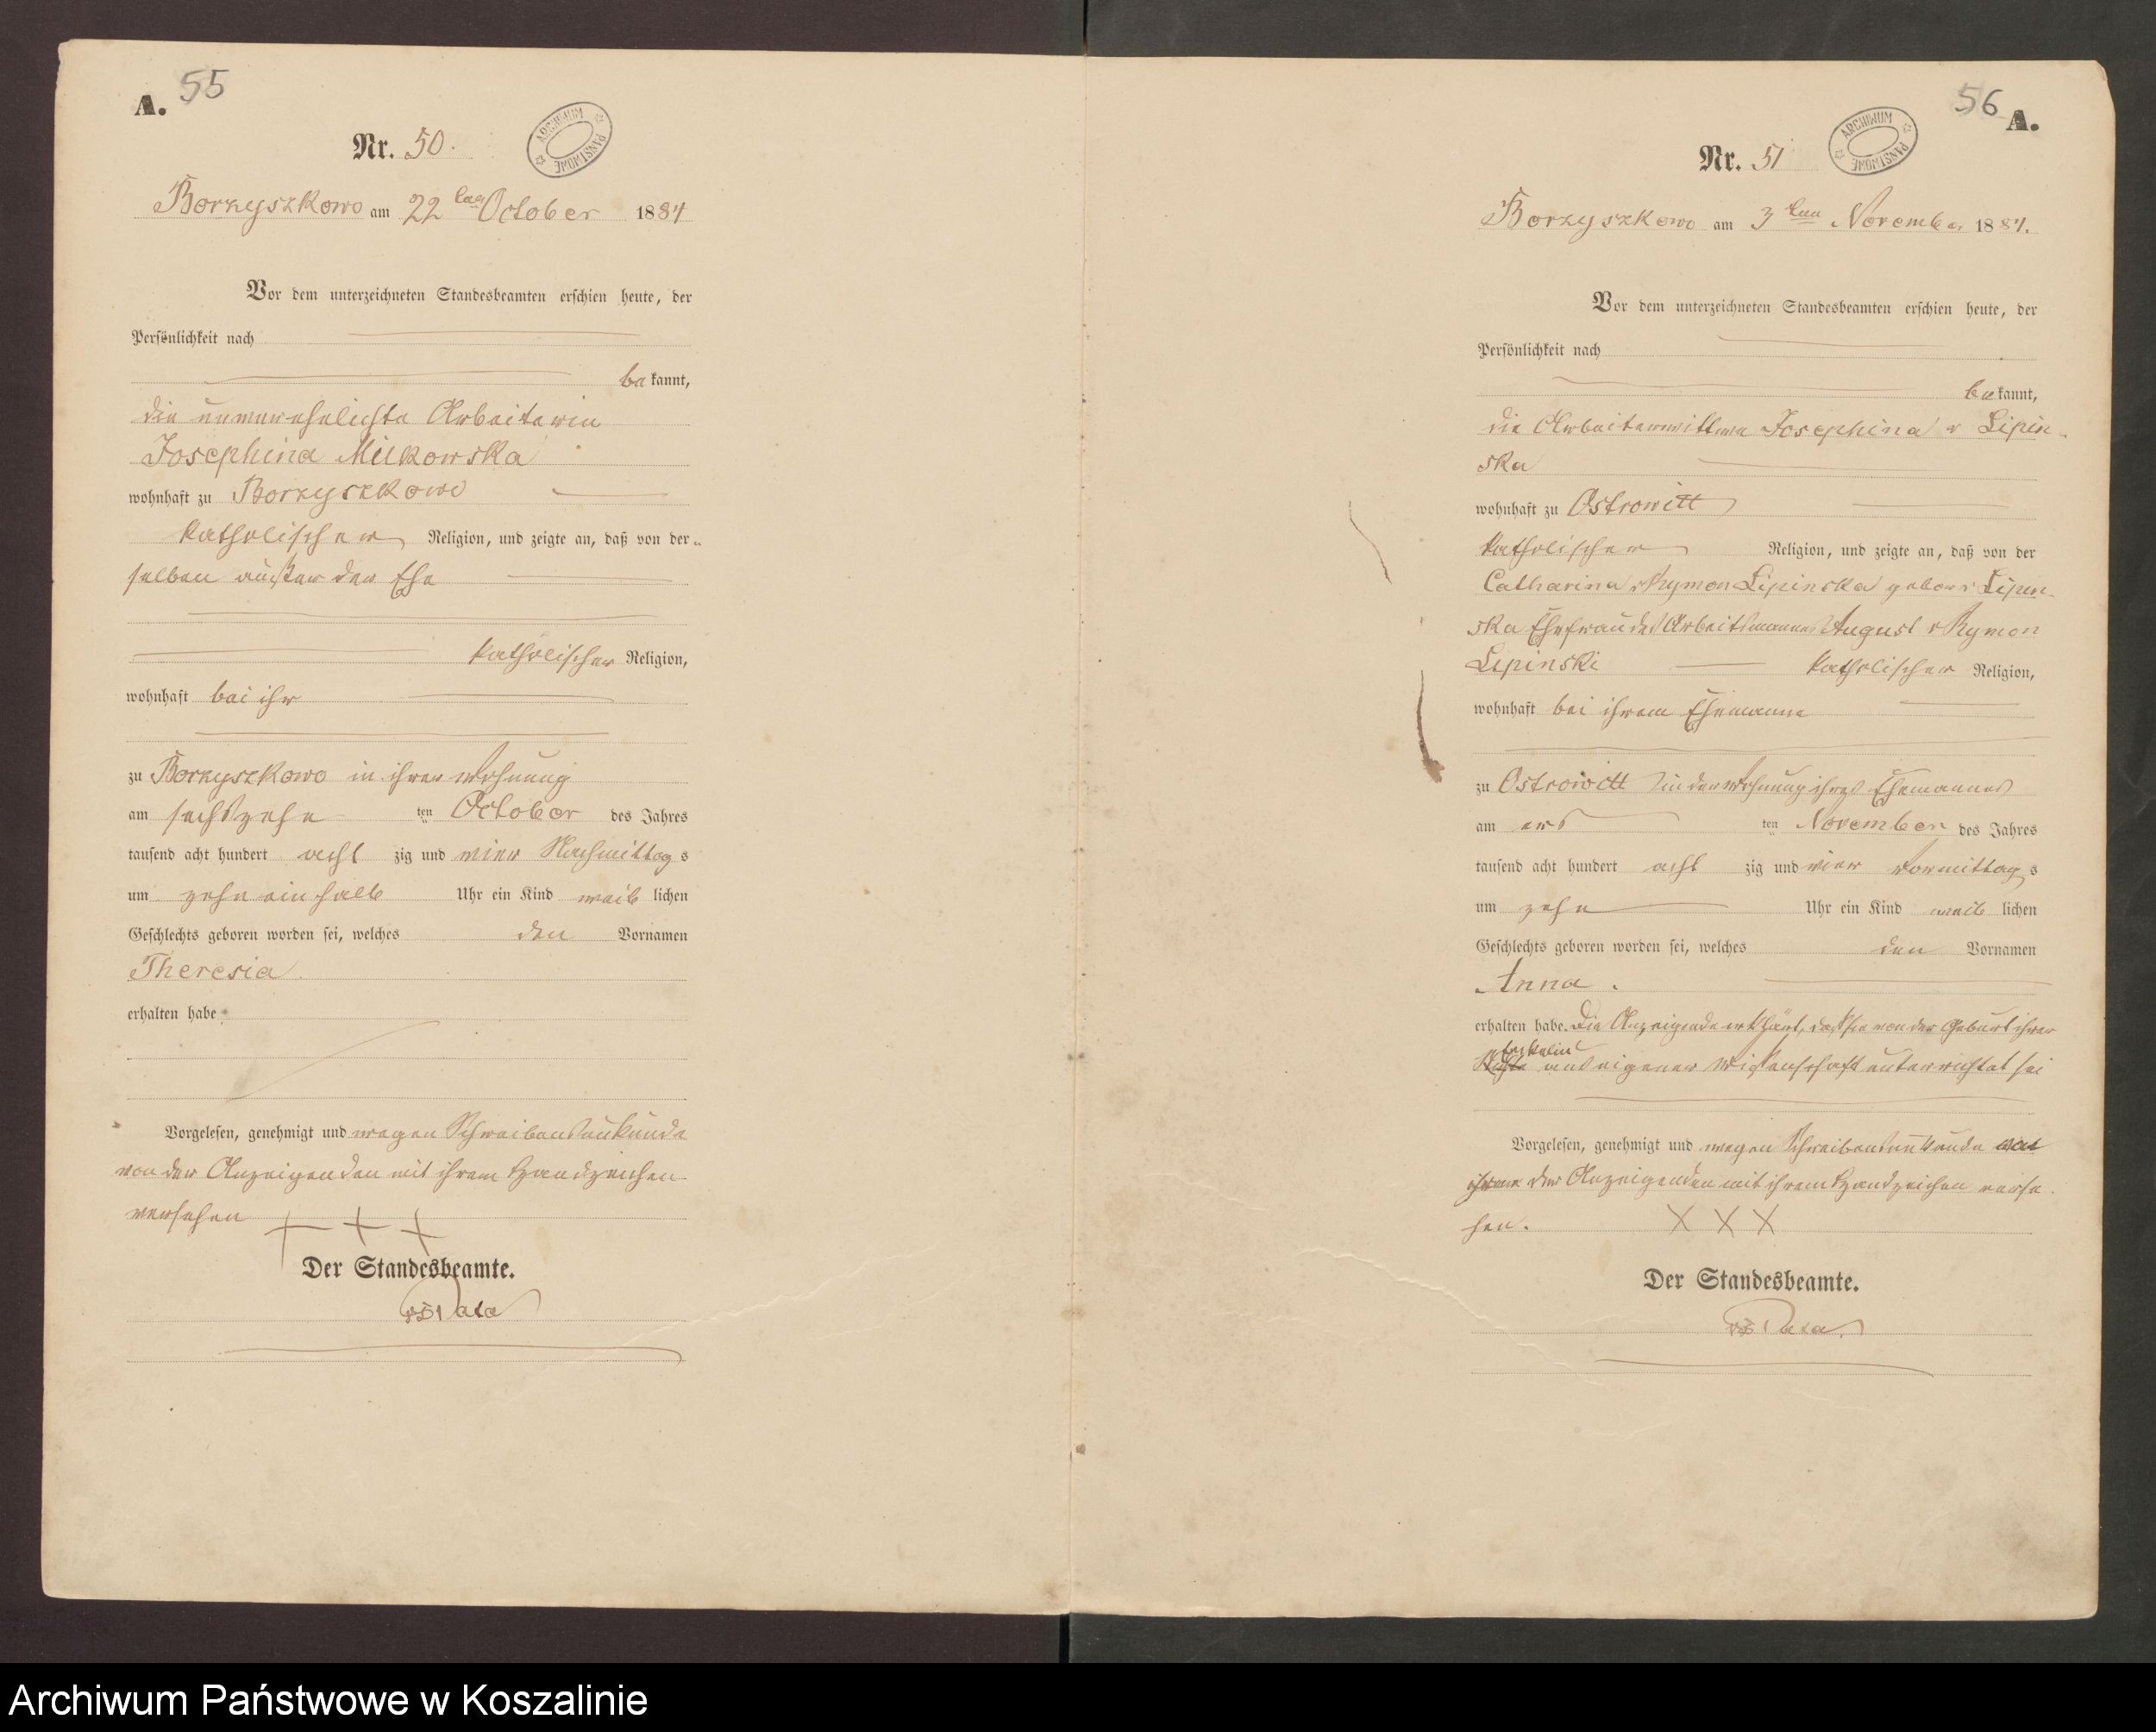 A. 55
Nr. 50.
ARCHIWUM PAŃSTWOWE
Borzyszkowo am 22 ten October 1884
Vor dem unterzeichneten Standesbeamten erschien heute, der
Persönlichkeit nach
be kannt,
die unverehelichte Arbeiterin
Josephina Milkowska
wohnhaft zu Borzyszkowo
katholischer Religion, und zeigte an, daß von der-
selben außer der Ehe
katholischer Religion,
wohnhaft bei ihr
zu Borzyszkowo in ihrer Wohnung
am sechszehn ten October des Jahres
tausend acht hundert acht zig und vier Nachmittag s
um zehn ein halb Uhr ein Kind weib lichen
Geschlechts geboren worden sei, welches den Vornamen
Theresia.
erhalten habe
Vorgelesen, genehmigt und wegen Schreibensunkunde
von der Anzeigenden mit ihrem Handzeichen
versehen + + +
Der Standesbeamte.
56 A.
Nr. 51
ARCHIWUM PAŃSTWOWE
Borzyszkowo am 3 ten November 1884.
Vor dem unterzeichneten Standesbeamten erschien heute, der
Persönlichkeit nach
be kannt,
die Arbeiterwittwe Josephina v Lipin-
ska
wohnhaft zu Ostrowitt
katholischer Religion, und zeigte an, daß von der
Catharina v Rymon Lipinska gebor v Lipin-
ska Ehefrau des Arbeitsmannes August v Rymon
Lipinski katholischer Religion,
wohnhaft bei ihrem Ehemanne
zu Ostrowitt in der Wohnung ihres Ehemannes
am ers ten November des Jahres
tausend acht hundert acht zig und vier Vormittag s
um zehn Uhr ein Kind weib lichen
Geschlechts geboren worden sei, welches den Vornamen
Anna.
erhalten habe. Die Anzeigende erklärt, daß sie von der Geburt ihrer
aus eigener Wissenschaft unterrichtet sei
Vorgelesen, genehmigt und wegen Schreibensunkunde
der Anzeigenden mit ihrem Handzeichen verse-
hen. X X X
Der Standesbeamte.
Archiwum Państwowe w Koszalinie